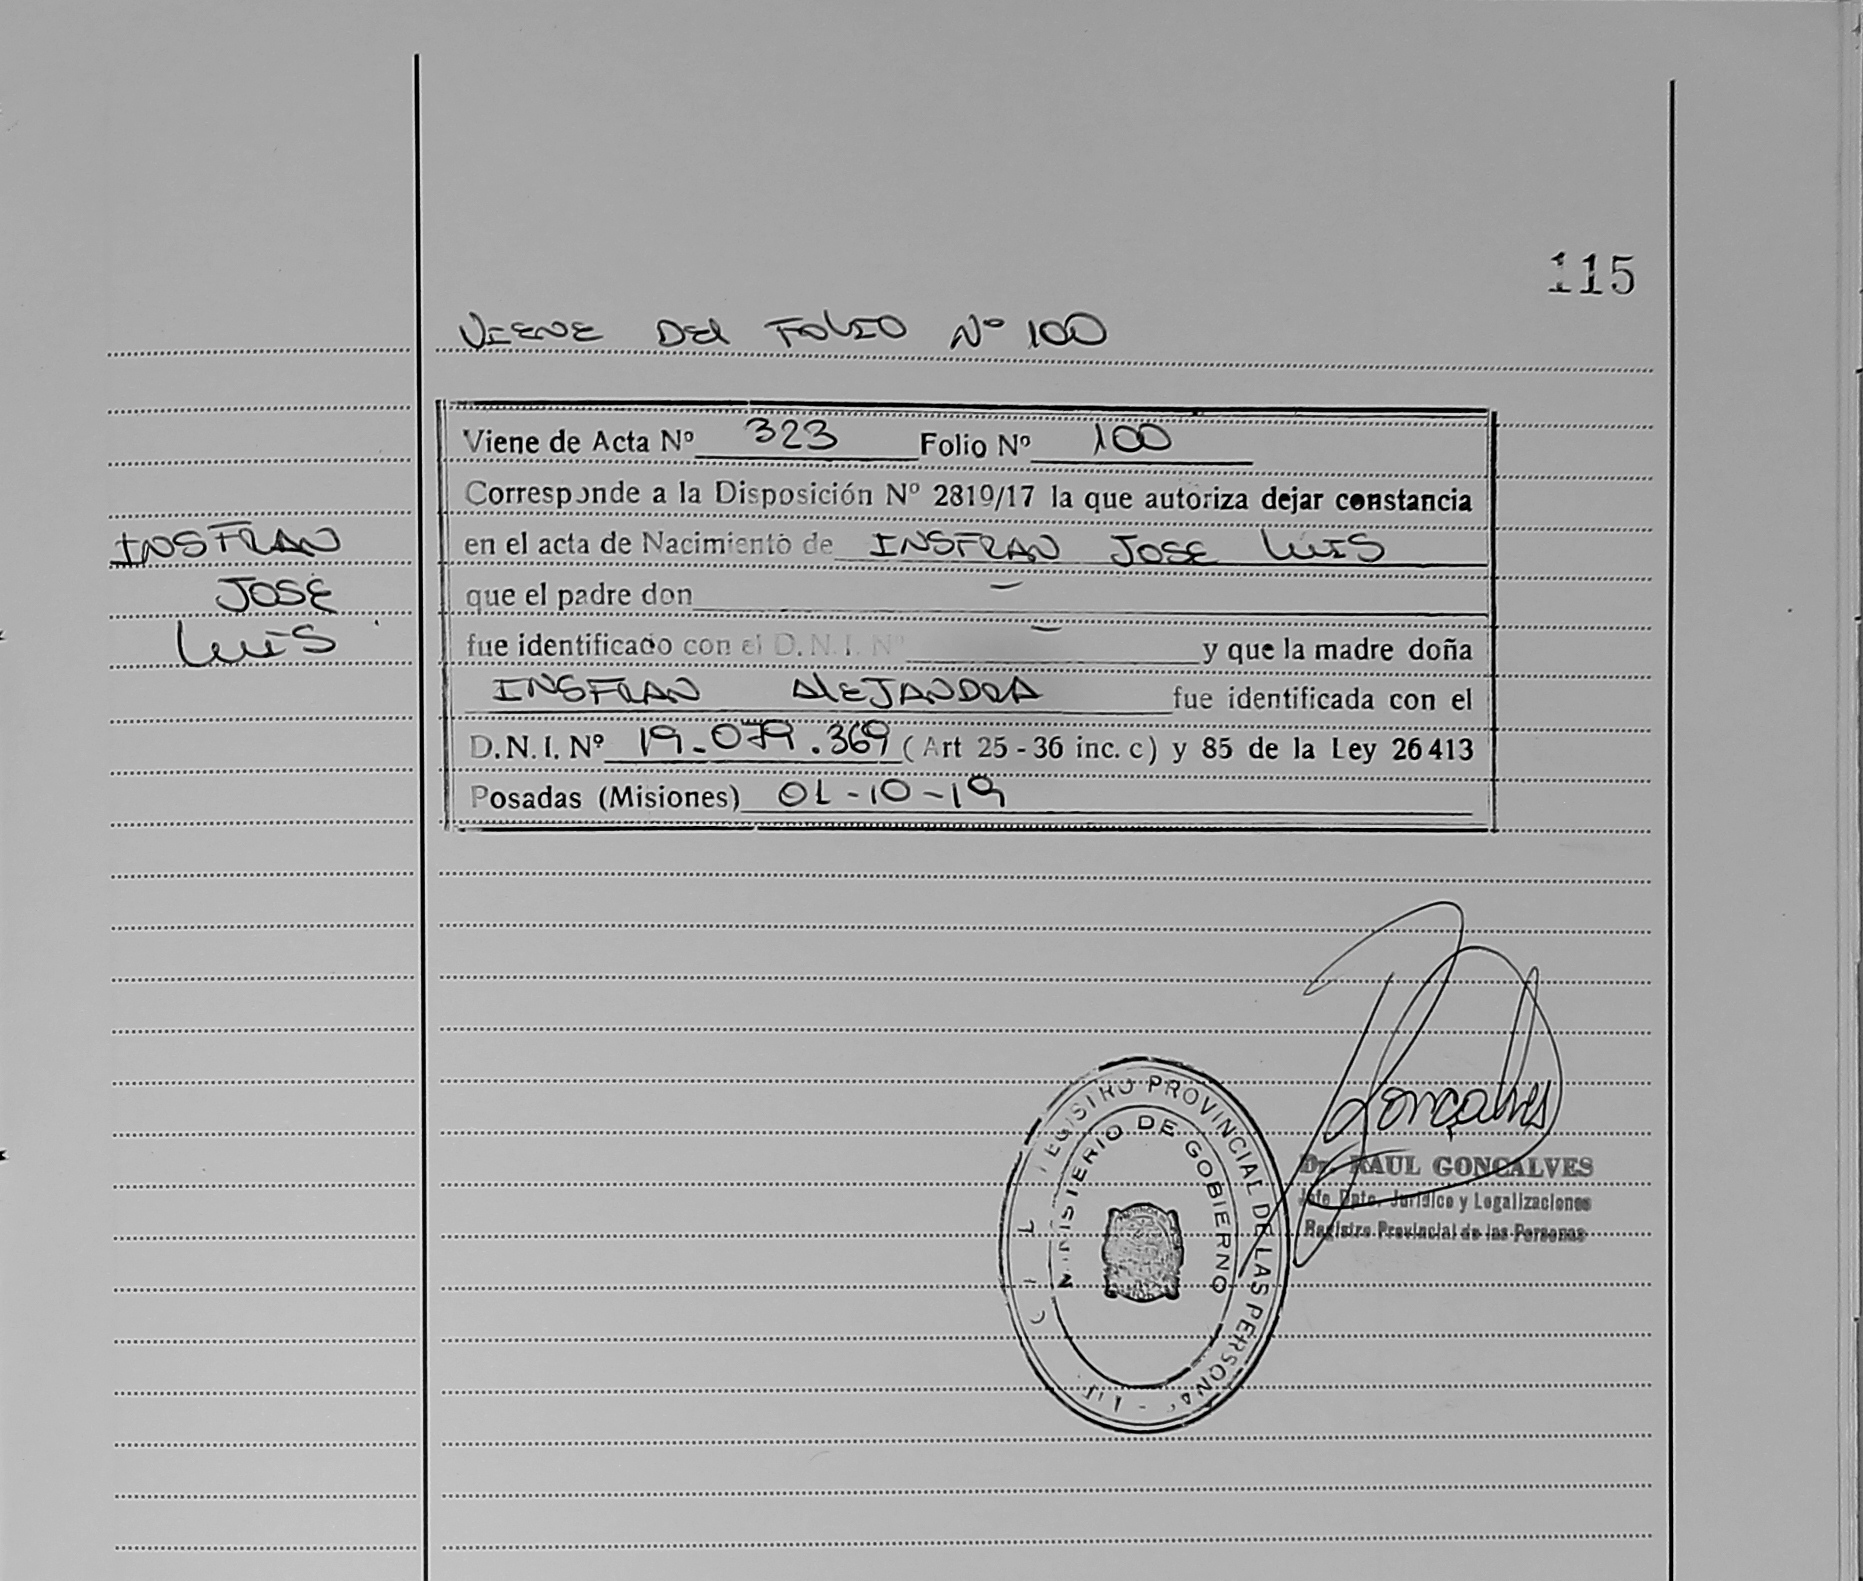 115
VIENE DEL FOLIO Nº 100
Viene de Acta Nº 323 Folio Nº 100
Corresponde a la Disposición Nº 2819/17 la que autoriza dejar constancia
en el acta de Nacimiento de INSFRAN JOSE LUIS
que el padre don —
fue identificado con el D.N.I. Nº — y que la madre doña
INSFRAN ALEJANDRA fue identificada con el
D.N.I. Nº 19.079.369 (Art 25 - 36 inc. c) y 85 de la Ley 26413
Posadas (Misiones) 01-10-19
INSFRAN
JOSE
LUIS
Goncalves
Dr. RAUL GONCALVES
Jefe Dpto. Jurídico y Legalizaciones
Registro Provincial de las Personas
REGISTRO PROVINCIAL DE LAS PERSONAS
MINISTERIO DE GOBIERNO